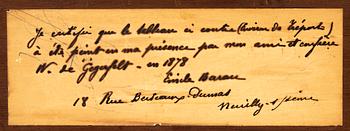 Je certifie que le tableau ci contre (Environ de Tréport)
à été peint en ma présence par mon ami et confrère
N. de Gegerfelt - en 1878
Emile Barau
18 Rue Bordeaux-Dumas
Neuilly-s/Seine